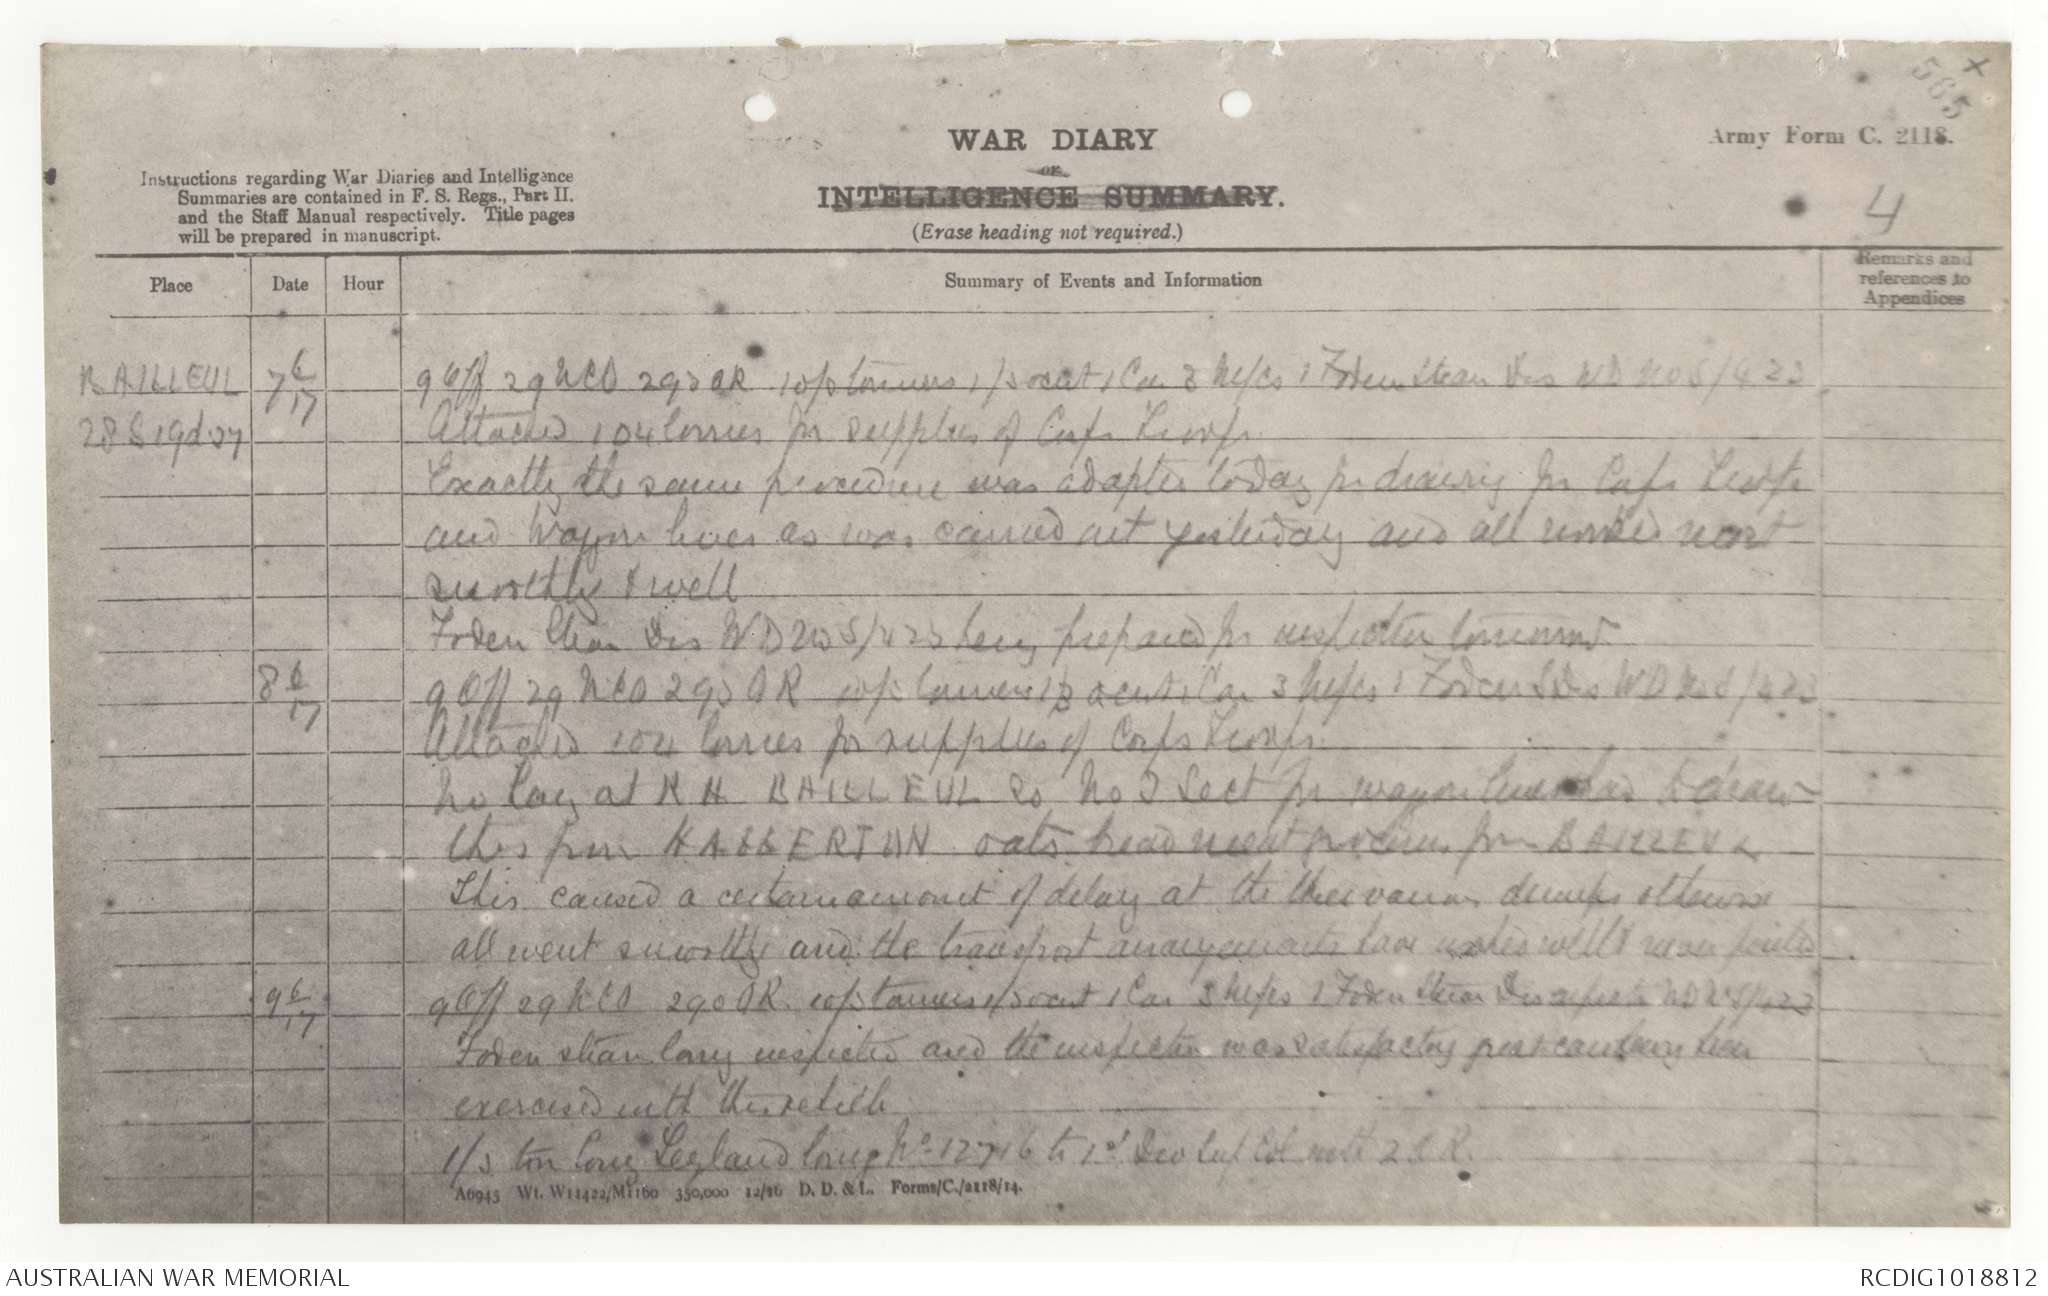 565
WAR DIARY
or
INTELLIGENCE SUMMARY.
(Erase heading not required.)
Army Form C. 2118.
4
Instructions regarding War Diaries and Intelligence
Summaries are contained in F. S. Regs., Part II.
and the Staff Manual respectively. Title pages
will be prepared in manuscript.
Place Date Hour Summary of Events and Information Remarks and references to Appendices
BAILLEUL 7 6/17 9 Off 29 NCO 293 OR lorries 1 Car 3 M/cs 1 Foden Steam Dis WD No S/423
28 S 19d 37 Attached 104 lorries for supplies of Corps Troops
Exactly the same procedure was adopted today for drawing for Corps Troops
and Wagon lines as was carried out yesterday and all worked most
smoothly & well
Foden Steam Dis WD No S/423 being prepared for inspection tomorrow
8 6/17 9 Off 29 NCO 293 OR lorries 1 Car 3 M/cs 1 Foden S Dis WD No S/423
Attached 104 lorries for supplies of Corps Troops.
No hay at RH BAILLEUL so No 3 Sect for wagon lines had to draw
this from oats bread meat groceries from BAILLEUL
This caused a certain amount of delay at the various dumps otherwise
all went smoothly and the transport arrangements have worked well
9 6/17 9 Off 29 NCO 290 OR lorries 1 Car 3 M/cs 1 Foden Steam Dis WD No S/423
Foden steam lorry inspected and the inspection was satisfactory great care having been
exercised with this vehicle
1/3 ton lorry Leyland lorry No 12716 to 1st Div Sup Col with 2 OR.
A6945 Wt. W11422/M1160 350,000 12/16 D. D. & L. Forms/C./2118/14.
AUSTRALIAN WAR MEMORIAL
RCDIG1018812